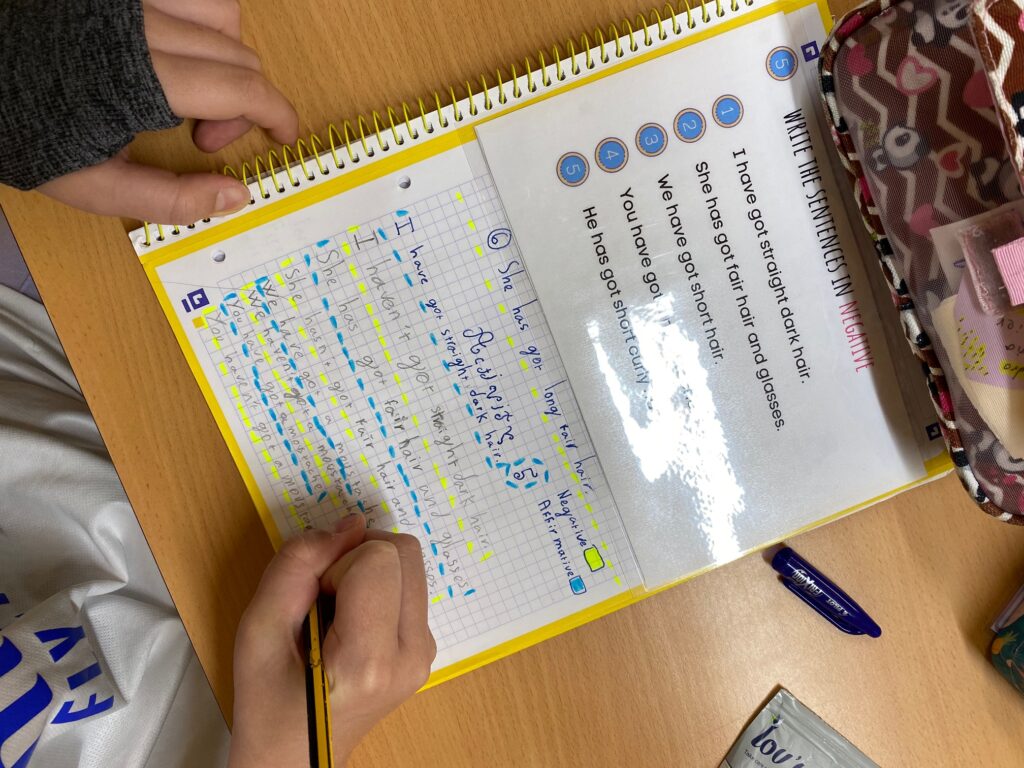 5 WRITE THE SENTENCES IN NEGATIVE
1 I have got straight dark hair.
2 She has got fair hair and glasses.
3 We have got short hair.
4 You have got
5 He has got short curly
6 She has got long fair hair.
Negative
Affirmative
Activity 5
I have got straight dark hair.
I haven't got straight dark hair.
She has got fair hair and glasses.
She hasn't got fair hair and
We have got a moustashe
We haven't got a
You have got a
You haven't got a